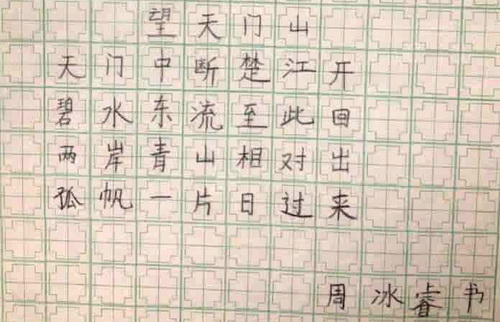 望天门山
天门中断楚江开
碧水东流至此回
两岸青山相对出
孤帆一片日过来
周冰睿书